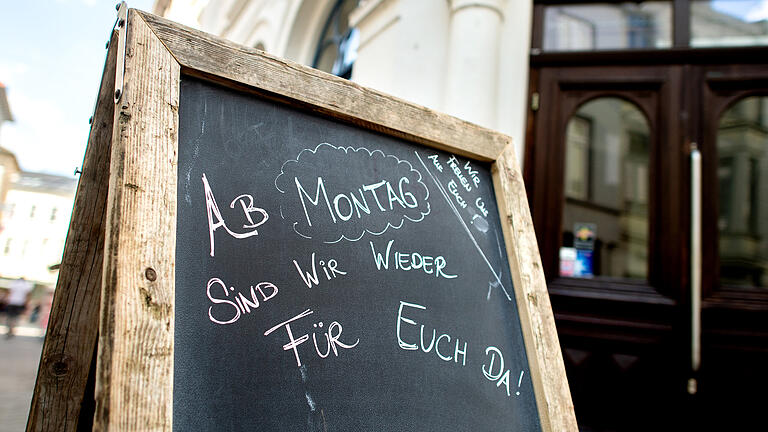 AB MONTAG
SIND WIR WIEDER
FÜR EUCH DA!
WIR
FREUEN UNS
AUF EUCH!